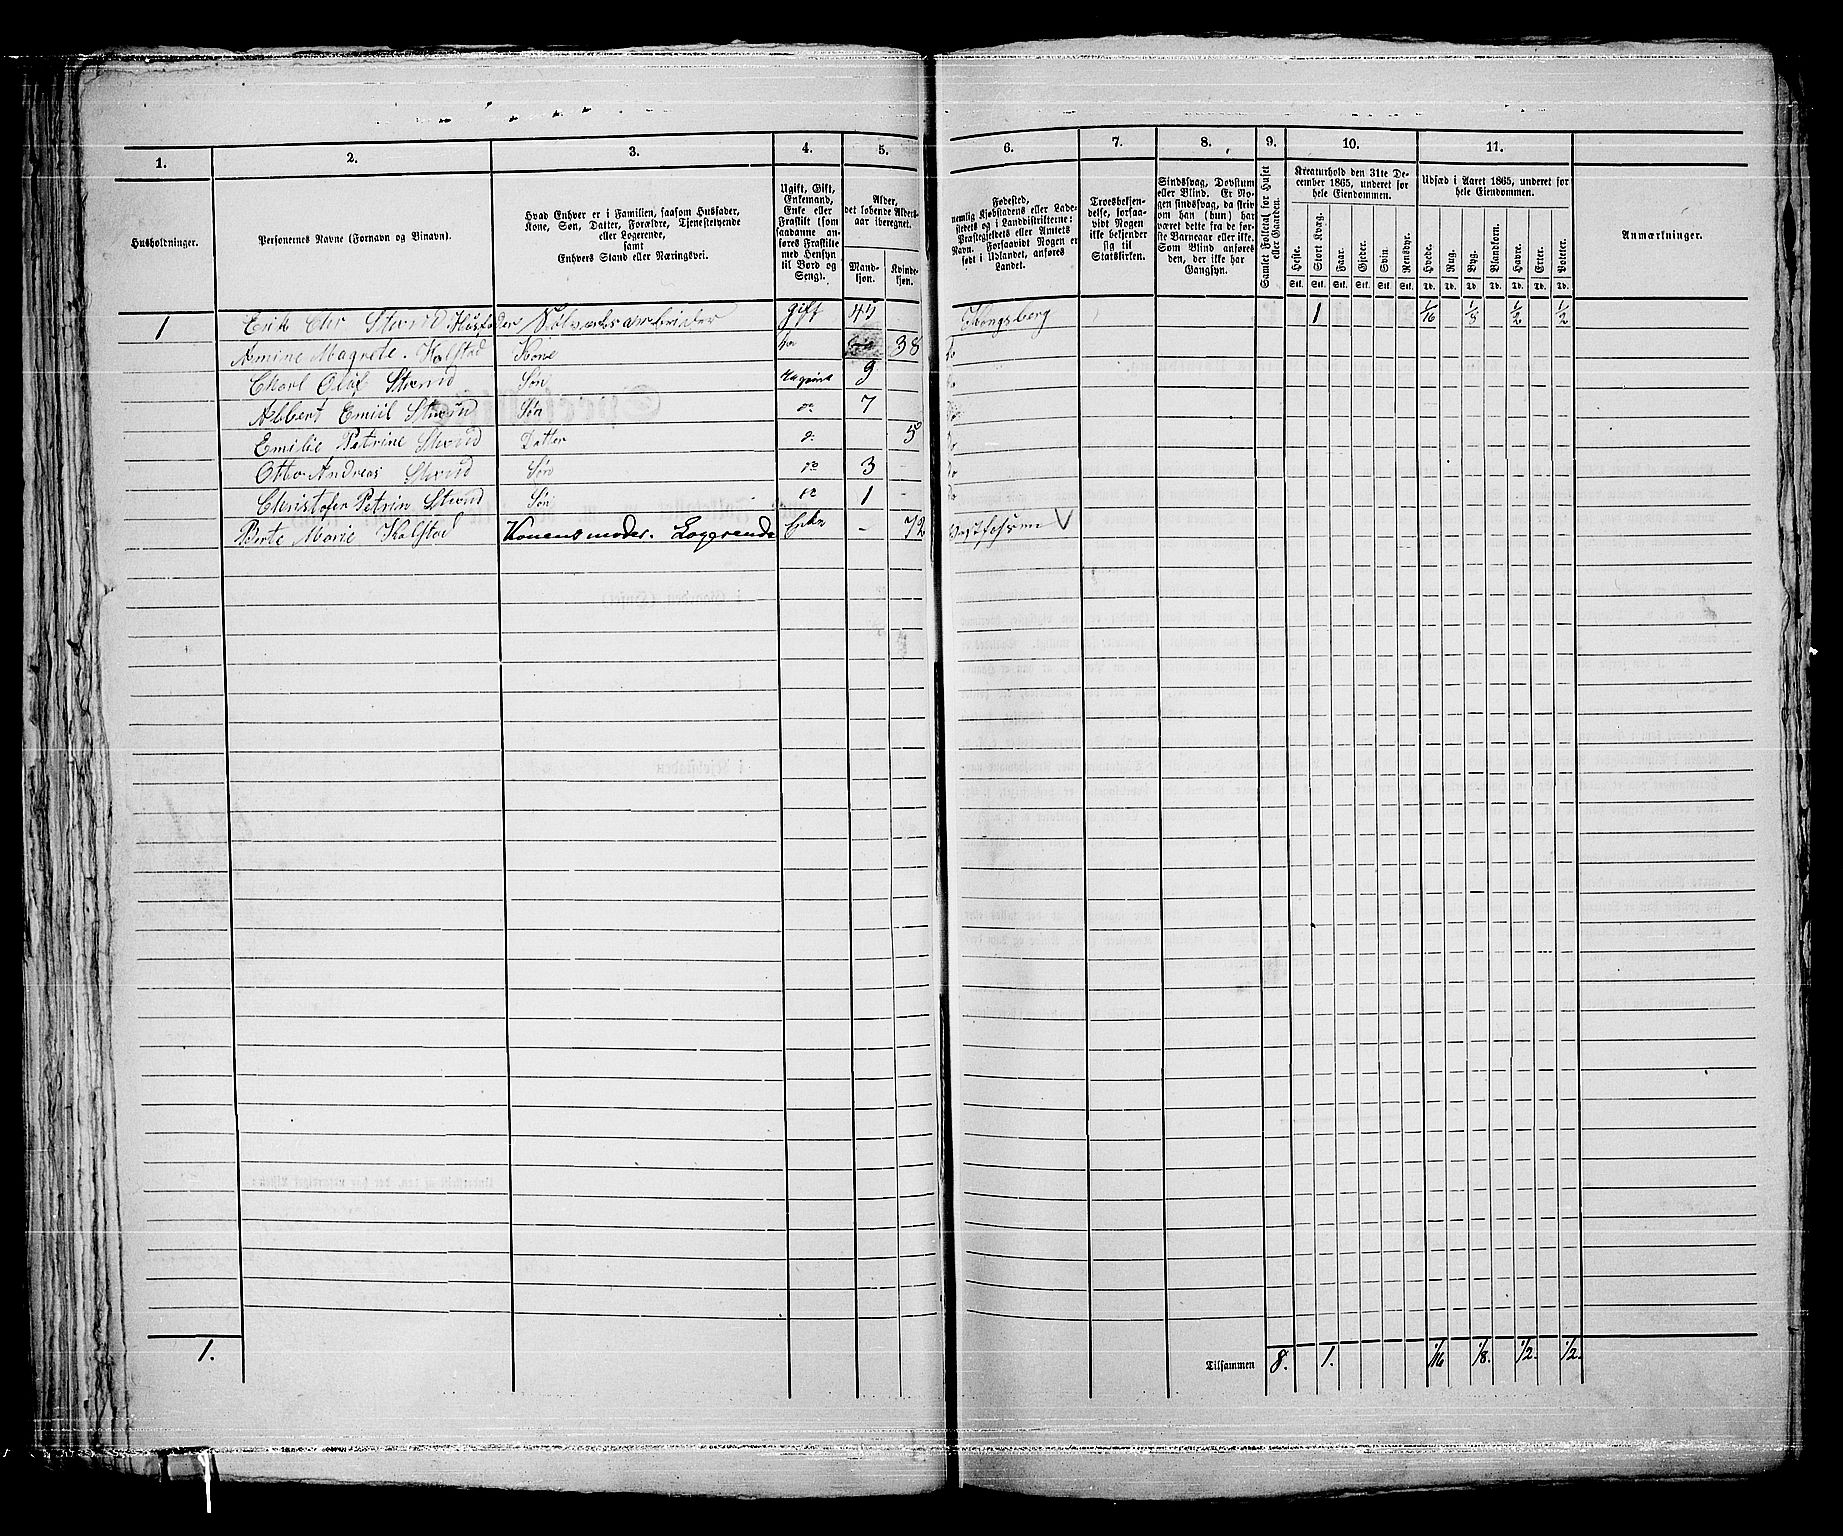 1. 2. 3. 4. 5. 6. 7. 8. 9. 10. 11.
Husholdninger.
Personernes Navne (Fornavn og Tilnavn).
Hvad Enhver er i Familien, saasom Husfader,
Kone, Søn, Datter, Forældre, Tjenestetyende
eller Logerende,
samt
Enhvers Stand eller Næringsvei.
Ugift, Gift,
Enkemand,
Enke eller
Fraskilt (som
saadanne an-
føres Fraskilte
med Hensyn
til Bord og
Seng).
Alder,
det løbende Alders-
aar iberegnet.
Mand-
kjøn.
Kvinde-
kjøn.
Fødested,
nemlig Kjøbstadens eller Lade-
stedets og i Landdistrikterne:
Præstegjeldets eller Amtets
Navn. Forsaavidt Nogen er
født i Udlandet, anføres
Landet.
Troesbekjen-
delse, forsaa-
vidt Nogen
ikke bekjender
sig til
Statskirken.
Sindssvag, Døvstum
eller Blind. Er No-
gen sindssvag, da skriv
om han (hun) har
været dette fra de før-
ste Barneaar eller ikke.
Som Blind anføres
den, der ikke har
Gangsyn.
Samlet Folketal for Huset
eller Gaarden.
Kreaturhold den 31te De-
cember 1865, underet for
hele Eiendommen.
Heste. Stort Kvæg. Faar. Gjeter. Svin. Rensdyr.
Stk. Stk. Stk. Stk. Stk. Stk.
Udsæd i Aaret 1865, underet for
hele Eiendommen.
Hvede. Rug. Byg. Blandkorn. Havre. Erter. Poteter.
Td. Td. Td. Td. Td. Td. Td.
Anmærkninger.
1 Erik Chr Strand Husfader Sølværksarbeider gift 45 Kongsberg 1 1/16 1/8 1/2 1/2
Amine Magrete Kalstad Kone 38 do
Charl Olaf Strand Søn 9 do
Albert Emiil Strand Søn do 7 do
Emilie Petrine Strand Datter do 5 do
Otto Andreas Strand Søn do 3 do
Christofer Petrin Strand Søn do 1 - do
Berte Marie Kalstad Konens moder. Logerende Enke - 72
1. Tilsammen 8. 1. 1/16 1/8. 1/2. 1/2.